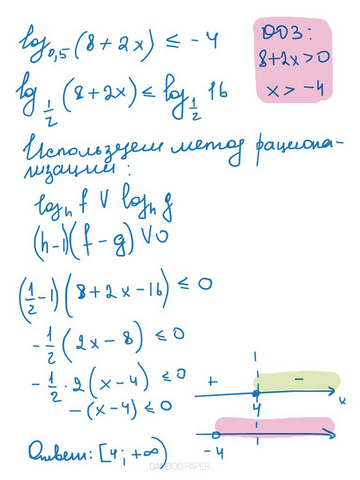 log₀,₅(8+2x) ≤ -4
ОДЗ:
8+2x>0
x > -4
log_{1/2}(8+2x) ≤ log_{1/2} 16
Используем метод рациона-
лизации:
log_h f V log_h g
(h-1)(f-g) V 0
(1/2-1)(8+2x-16) ≤ 0
-1/2(2x-8) ≤ 0
-1/2·2(x-4) ≤ 0
-(x-4) ≤ 0
+ -
4 x
-4
Ответ: [4; +∞)
BAMBOO PAPER